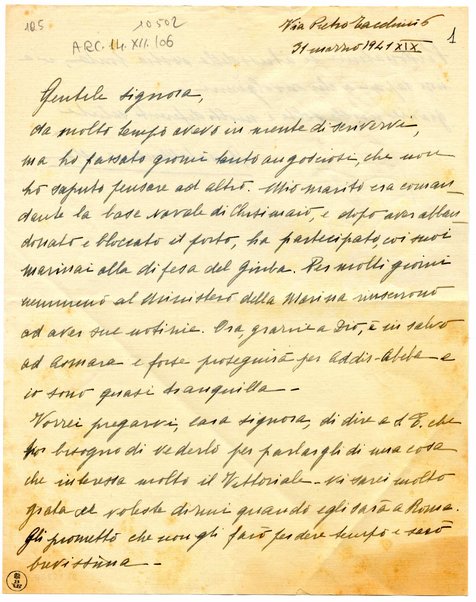 105
10502
ARC. 14. XII. /06
Via Pietro Tacchini 6
31 marzo 1941 XIX
1
Gentile signora,
da molto tempo avevo in mente di scriverve,
ma ho passato giorni tanto angosciosi, che non
ho saputo pensare ad altro. Mio marito era coman-
dante la base navale di Chisimaio, e dopo aver abban-
donato e bloccato il porto, ha partecipato, coi suoi
marinai alla difesa del Giuba. Per molti giorni
nemmeno al Ministero della Marina riuscirono
ad aver sue notizie. Ora, grazie a Dio, è in salvo
ad Asmara e forse proseguirà per Addis-Abeba e
io sono quasi tranquilla -
Vorrei pregarvi, cara signora, di dire a S. E. che
ho bisogno di vederlo per parlargli di una cosa
che interessa molto il Vittoriale - vi sarei molto
grata se voleste dirmi quando egli sarà a Roma.
Gli prometto che non gli farò perdere tempo e sarò
brevissima -